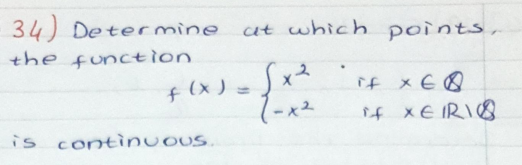 34) Determine at which points,
the function
f(x) = { x² if x ∈ ℚ
-x² if x ∈ ℝ\ℚ
is continuous.